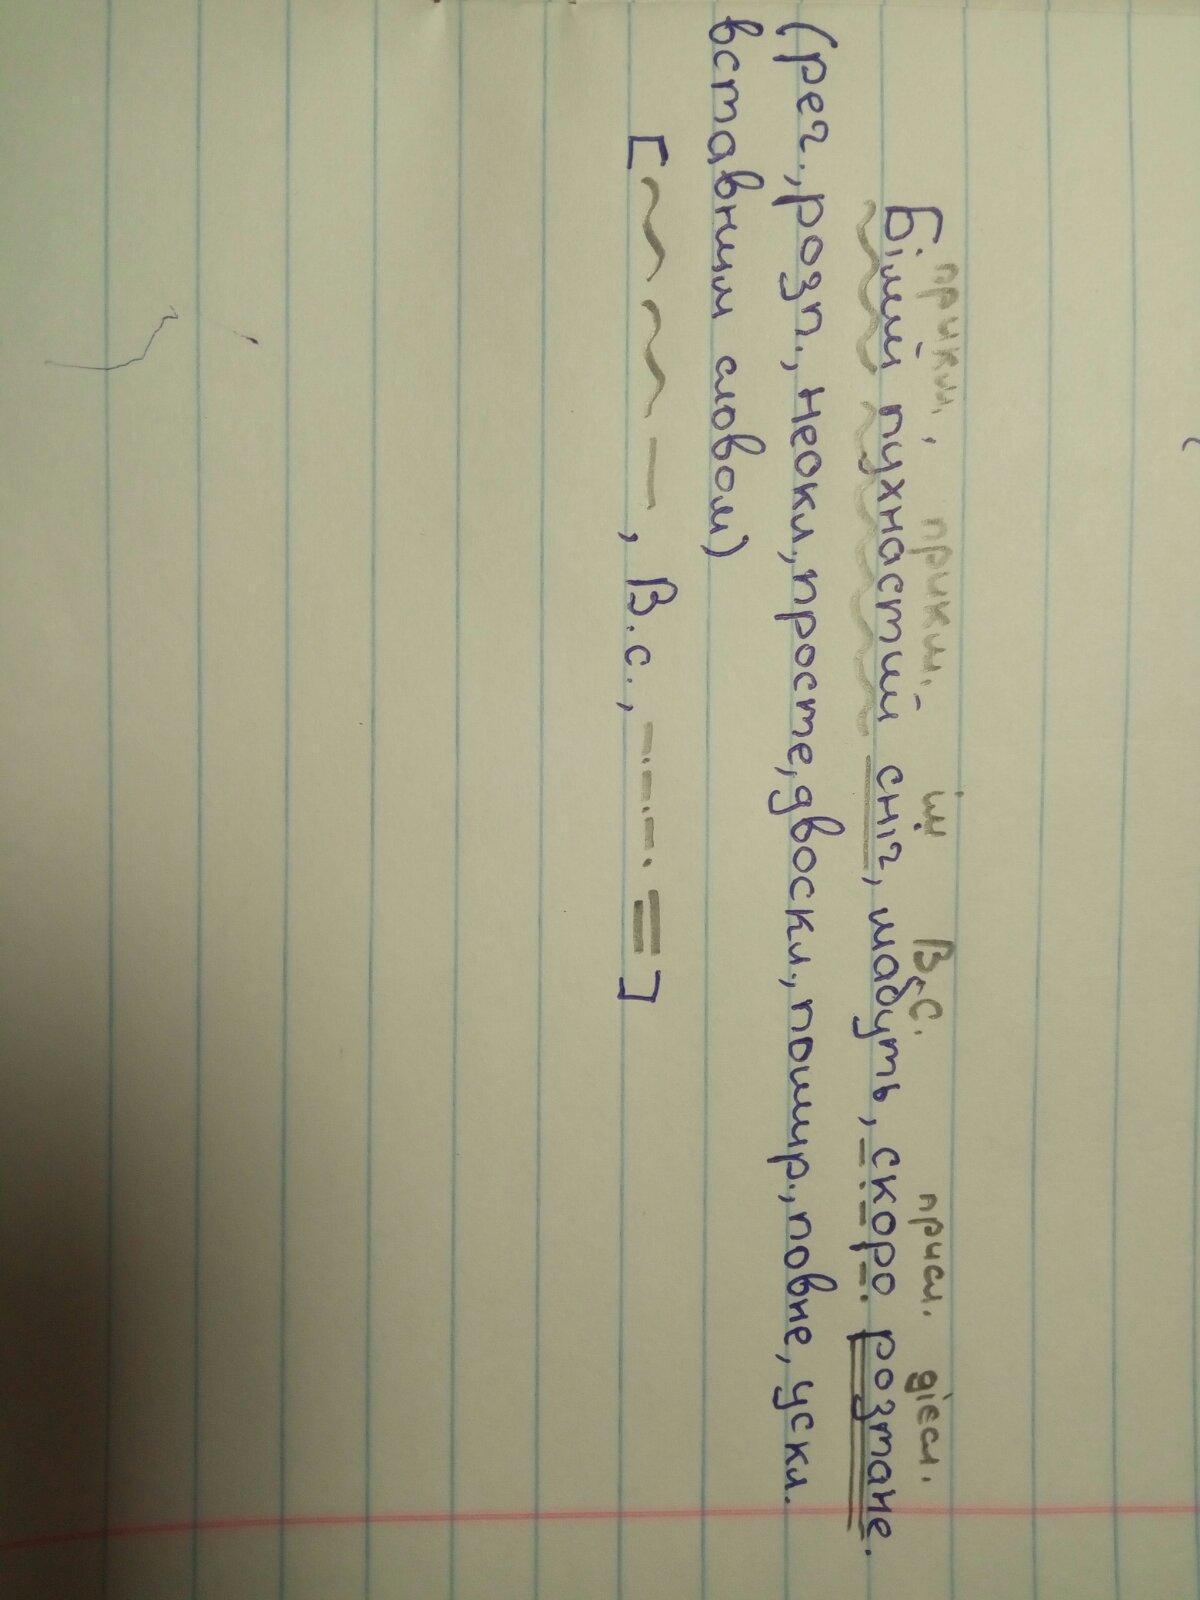 прикм. прикм. ім. В.С. присл. дієсл.
Білий пухнастий сніг, мабуть, скоро розтане.
(реч., розп., неокл., просте, двоскл., пошир., повне, ускл.
вставним словом)
[ , В.с., ]